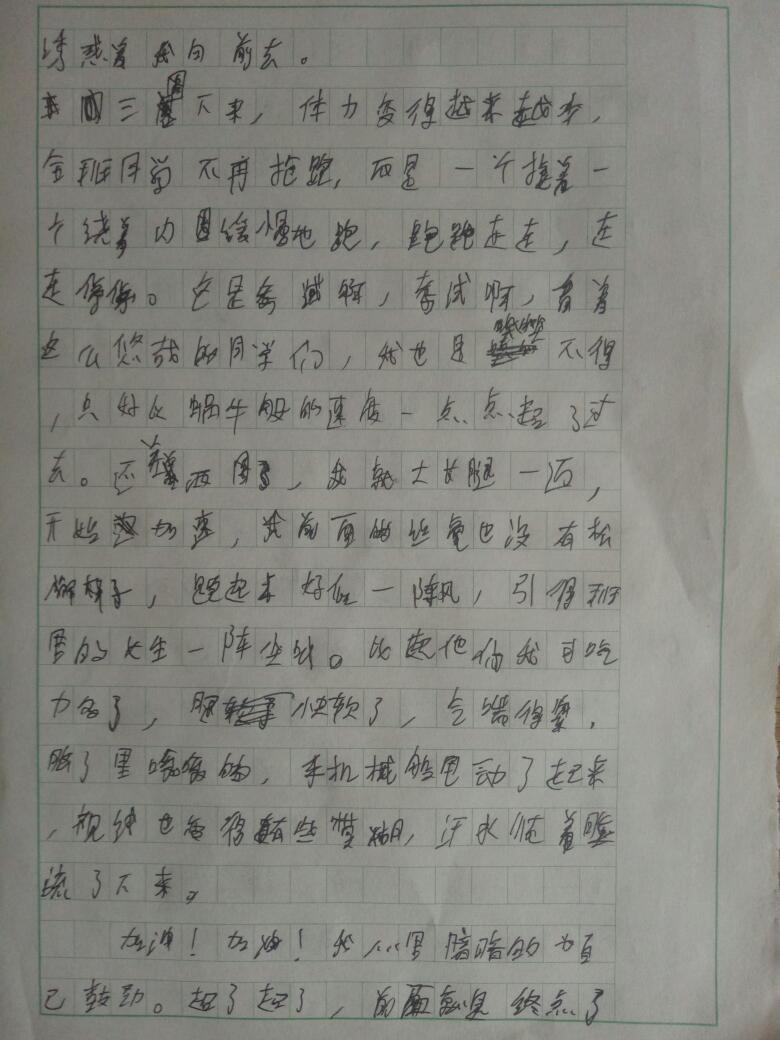 诱惑着我向前去。
三圈下来，体力变得越来越
全班同学不再抢跑，而是一个接着一
个绕着内圈缓慢地跑，跑跑走走，走
走停停。这是考试啊，考试啊，看着
这么悠哉的同学们，我也是 不得
，只好以蜗牛般的速度一点点超了过
去。还差两圈了，我就大长腿一迈，
开始加 ，前面的 也没有松
解样子，跑起来好似一阵风，引得班
里的女生一阵尖叫。比起他俩我可吃
力多了，腿快软了，气喘得紧，
脑子里嗡嗡的，手机械般甩动了起来
，视线也变得有些模糊，汗水随着脸
流了下来。
加油！加油！我心里暗暗的为自
己鼓劲。超了超了，前面就是终点了